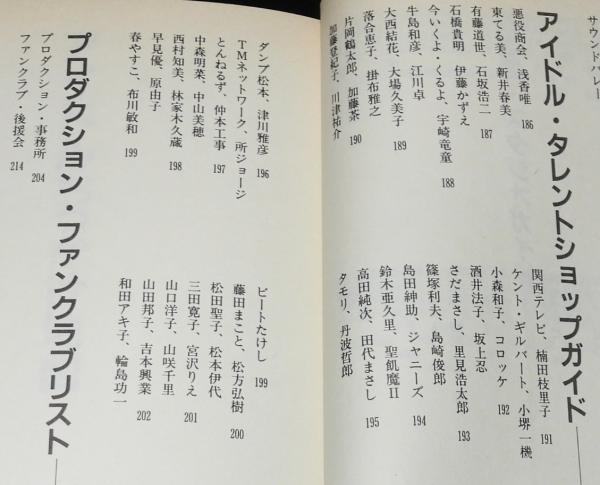 サウンドバレー
アイドル・タレントショップガイド
悪役商会、浅香唯 186
東てる美、新井春美
有藤道世、石坂浩二 187
石橋貴明 伊藤かずえ
今いくよ・くるよ、宇崎竜童 188
牛島和彦、江川卓
大西結花、大場久美子 189
落合恵子、掛布雅之
片岡鶴太郎、加藤茶 190
加藤登紀子、川津祐介
関西テレビ、楠田枝里子 191
ケント・ギルバート、小堺一機
小森和子、コロッケ 192
酒井法子、坂上忍
さだまさし、里見浩太郎 193
篠塚利夫、島崎俊郎
島田紳助、ジャニーズ 194
鈴木亜久里、聖飢魔II
高田純次、田代まさし 195
タモリ、丹波哲郎
ダンプ松本、津川雅彦 196
TMネットワーク、所ジョージ
とんねるず、仲本工事 197
中森明菜、中山美穂
西村知美、林家木久蔵 198
早見優、原由子
春やすこ、布川敏和 199
ビートたけし 199
藤田まこと、松方弘樹 200
松田聖子、松本伊代
三田寛子、宮沢りえ 201
山口洋子、山咲千里
山田邦子、吉本興業 202
和田アキ子、輪島功一
プロダクション・ファンクラブリスト
プロダクション・事務所 204
ファンクラブ・後援会 214